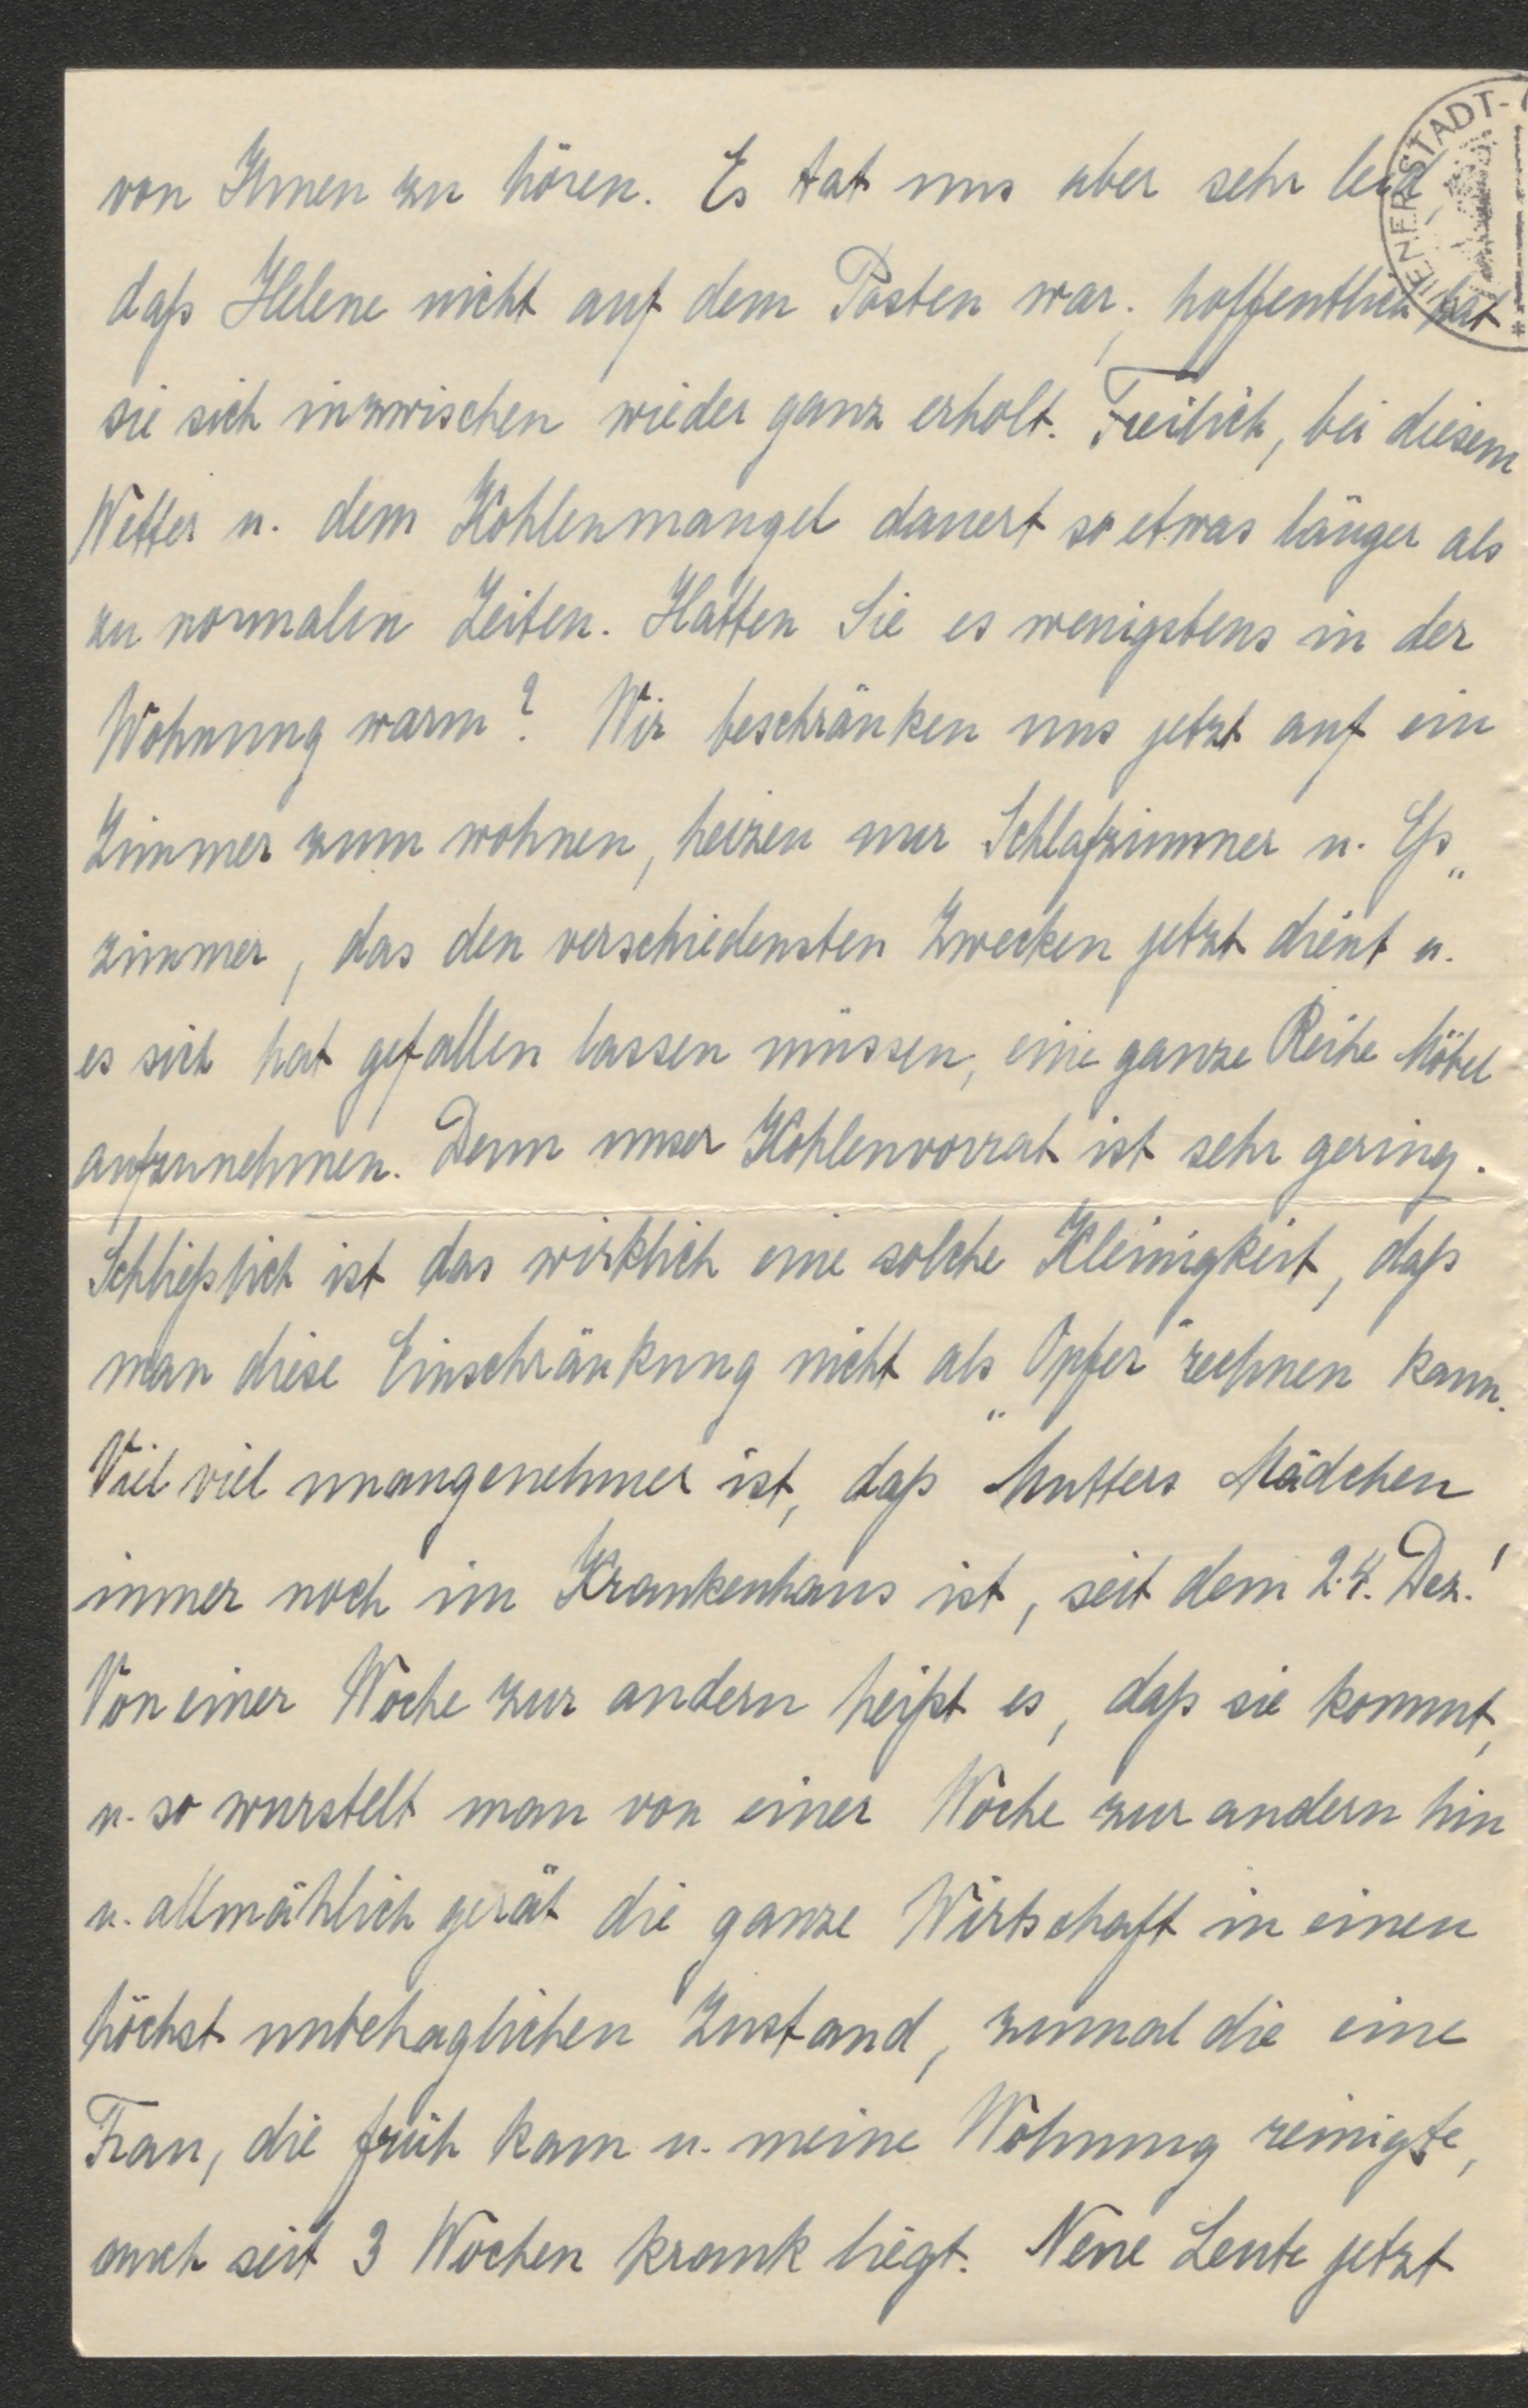 von Ihnen zu hören. Es tat uns aber sehr leid,
daß Helene nicht auf dem Posten war; hoffentlich hat
sie sich inzwischen wieder ganz erholt. Freilich, bei diesem
Wetter u. dem Kohlenmangel dauert so etwas länger als
zu normalen Zeiten. Hatten Sie es wenigstens in der
Wohnung warm? Wir beschränken uns jetzt auf ein
Zimmer zum wohnen, heizen nur Schlafzimmer u. Eß„
zimmer, das den verschiedensten Zwecken jetzt dient u.
es sich hat gefallen lassen müssen, eine ganze Reihe Möbel
aufzunehmen. Denn unser Kohlenvorrat ist sehr gering.
Schließlich ist das wirklich eine solche Kleinigkeit, daß
man diese Einschränkung nicht als „Opfer" rechnen kann.
Viel viel unangenehmer ist, daß Mutters Mädchen
immer noch im Krankenhaus ist, seit dem 24. Dez.!
Von einer Woche zur andern heißt es, daß sie kommt,
u. so wurstelt man von einer Woche zur andern hin
u. allmählich gerät die ganze Wirtschaft in einen
höchst unbehaglichen Zustand, zumal die eine
Frau, die früh kam u. meine Wohnung reinigte,
auch seit 3 Wochen krank liegt. Neue Leute jetzt
IENER STADT-